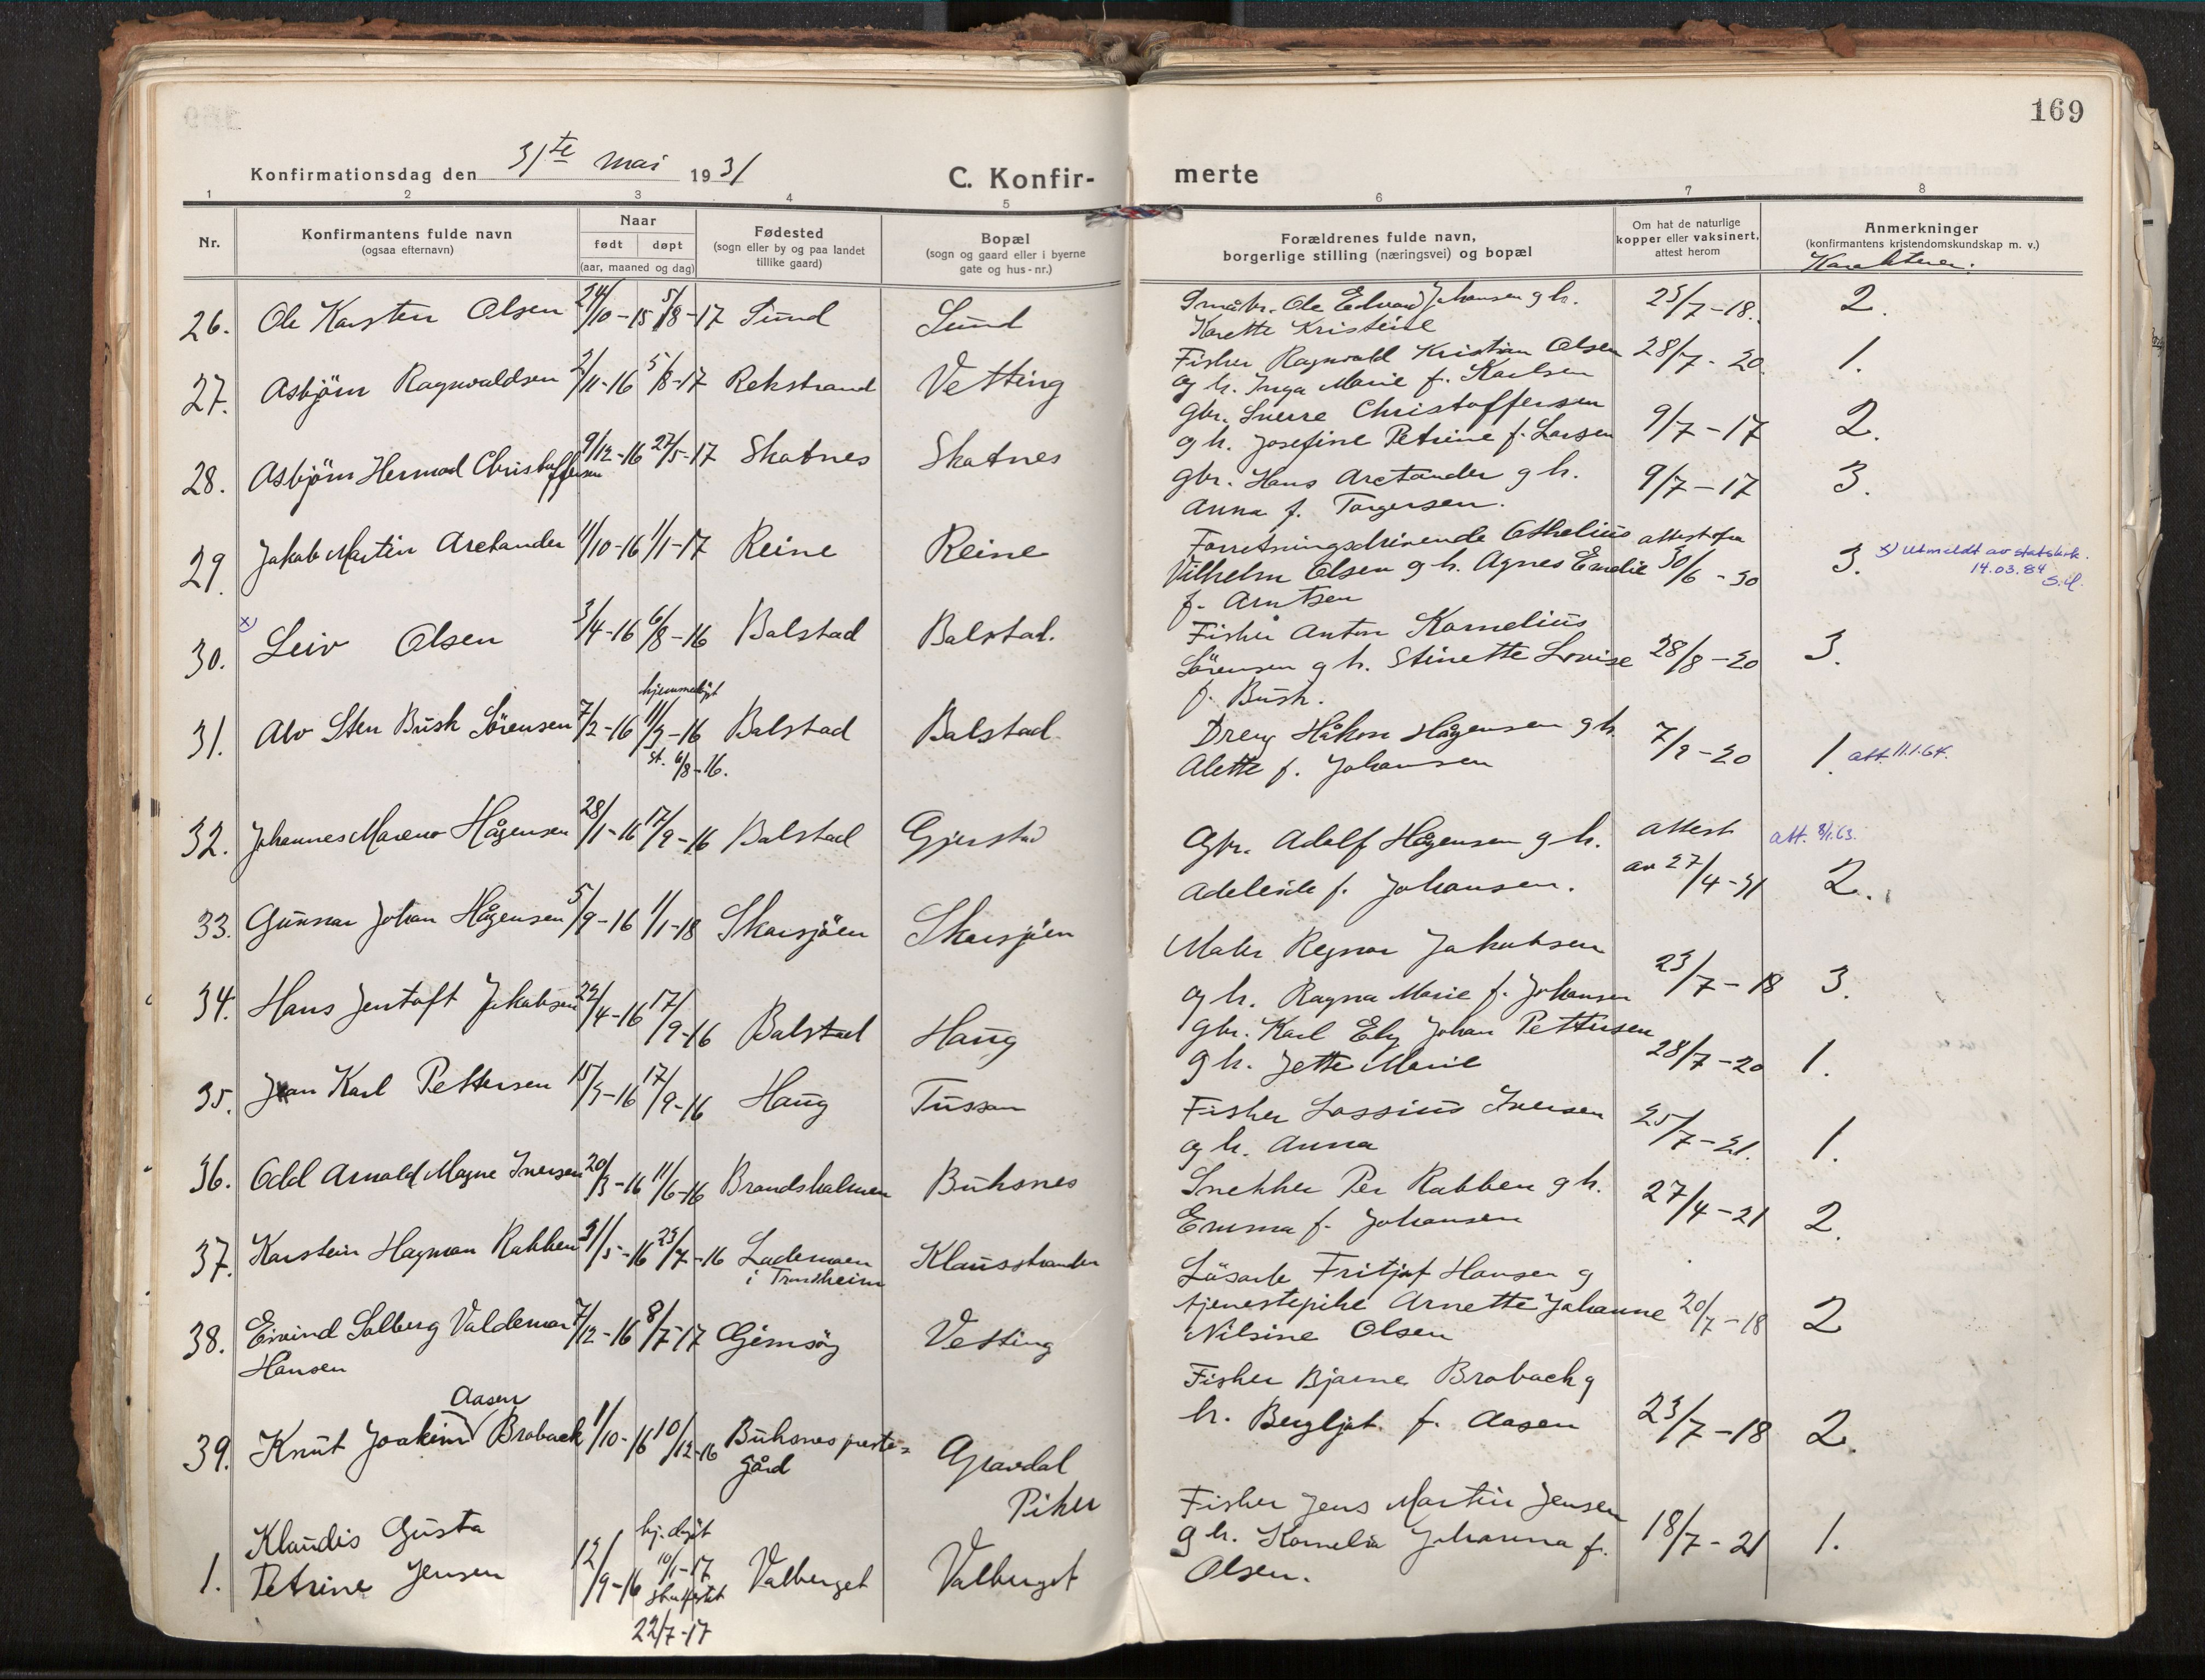 169
Konfirmationsdag den 31te mai 1931 C. Konfir- merte
1 2 3 4 5 6 7 8
Nr.
Konfirmantens fulde navn
(ogsaa efternavn)
Naar
født døpt
(aar, maaned og dag)
Fødested
(sogn eller by og paa landet
tillike gaard)
Bopæl
(sogn og gaard eller i byerne
gate og hus-nr.)
Forældrenes fulde navn,
borgerlige stilling (næringsvei) og bopæl
Om hat de naturlige
kopper eller vaksinert,
attest herom
Anmerkninger
(konfirmantens kristendomskundskap m. v.)
Karakterer.
26. Ole Karsten Olsen 24/10-15 5/8-17 Sund Sund
Småbr. Ole Edvard Johansen g h. 23/7-18. 2.
Karette Kristine
27. Asbjörn Ragnvaldsen 2/11-16 5/8-17 Rekstrand Vetting
Fisker Ragnvald Kristian Olsen 28/7-20. 1.
og h. Inga Marie f. Karlsen
28. Asbjörn Hermod Christoffersen 9/12-16 27/5-17 Skatnes Skatnes
Gbr. Sverre Christoffersen
og h. Josefine Petrine f. Larsen 9/7-17 2.
29. Jakob Martin Arctander 11/10-16 1/1-17 Reine Reine
Gbr. Hans Arctander g h. 9/7-17 3.
Anna f. Torgersen.
30. x) Leiv Olsen 3/4-16 6/8-16 Balstad Balstad.
Forretningsdrivende Othelius attest fra
Vilhelm Olsen g h. Agnes Emelie 30/6-30 3. x) Utmeldt av statskirk.
14.03.84
f. Arntsen
31. Alv Sten Busk Sörensen 7/2-16 hjemmedöpt 11/3-16 st. 6/8-16. Balstad Balstad
Fisker Anton Kornelius
Sörensen g h. Stinette Lovise 28/8-20 3.
f. Busk.
32. Johannes Mareno Hågensen 28/1-16 17/9-16 Balstad Gjerstad
Dreng Håkon Hågensen g h. 7/9-20 1. att. 11.1.64.
Alette f. Johansen
33. Gunnar Johan Hågensen 5/9-16 1/1-18 Skarsjöen Skarsjöen
Gbr. Adolf Hågensen g h. attest att. 8/1.63.
Adeleide f. Johansen. av 27/4-31 2.
34. Hans Jentoft Jakobsen 22/4-16 17/9-16 Balstad Haug
Maler Regnar Jakobsen
og h. Ragna Marie f. Johansen 23/7-18 3.
35. Jan Karl Pettersen 15/3-16 17/9-16 Haug Tussan
Gbr. Karl Johan Pettersen
g h. Jette Marie 28/7-20 1.
36. Odd Arnold Magne Iversen 20/3-16 11/6-16 Brandsholmen Buksnes
Fisker Lossius Iversen 25/7-21. 1.
og h. Anna
37. Karstein Hagman Rabben 31/5-16 23/7-16 Lademoen Klausstranden
i Trondheim
Snekker Per Rabben g h. 27/4-21 2.
Emma f. Johansen
38. Eivind Solberg Valdemar 7/12-16 8/7-17 Gimsöy Vetting
Hansen
Lösarb. Fritjof Hansen g
tjenestepike Arnette Johanne 20/7-18 2
Nilsine Olsen
Aasen
39. Knut Joakim Braback 1/10-16 10/12-16 Buksnes preste= Gravdal
gård
Fisker Bjarne Braback g
h. Bergljot f. Aasen 23/7-18 2.
Piker
1. Klaudis Gusta
Petrine Jensen 12/9-16 hj. döpt 10/1-17 stadfestet 22/7-17 Valberget Valberget
Fisker Jens Martin Jensen
g h. Kornelia Johanna f. 18/7-21 1.
Olsen.